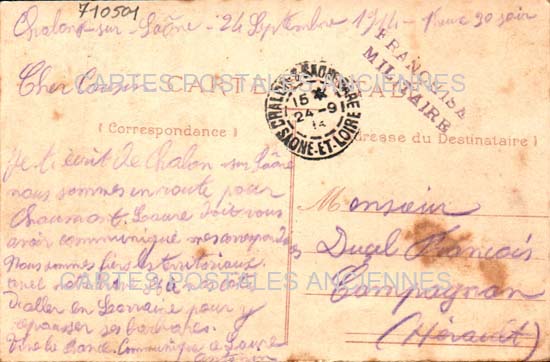 710501
Chalon-sur-Saône - 24 Septembre 1914 - heure 20 soir
FRANCHISE
MILITAIRE
Cher Cousin
CARTE POSTALE
CARTES POSTALES ANCIENNES
CHALON-S-SAONE GARE
15 *
24-9
14
SAONE-ET-LOIRE
(Correspondance)
Adresse du Destinataire)
Je t'écrit de Chalon sur Saône
nous sommes en route pour
Chaumont. Laure doit vous
avoir communiqué mes correspondances
Nous sommes fiers les territoriaux
d'aller en Lorraine pour y
repousser ses barbares.
Vive la France. Communique à Laure
Monsieur
Ducel François
Campagnan
(Hérault)
CARTES POSTALES ANCIENNES